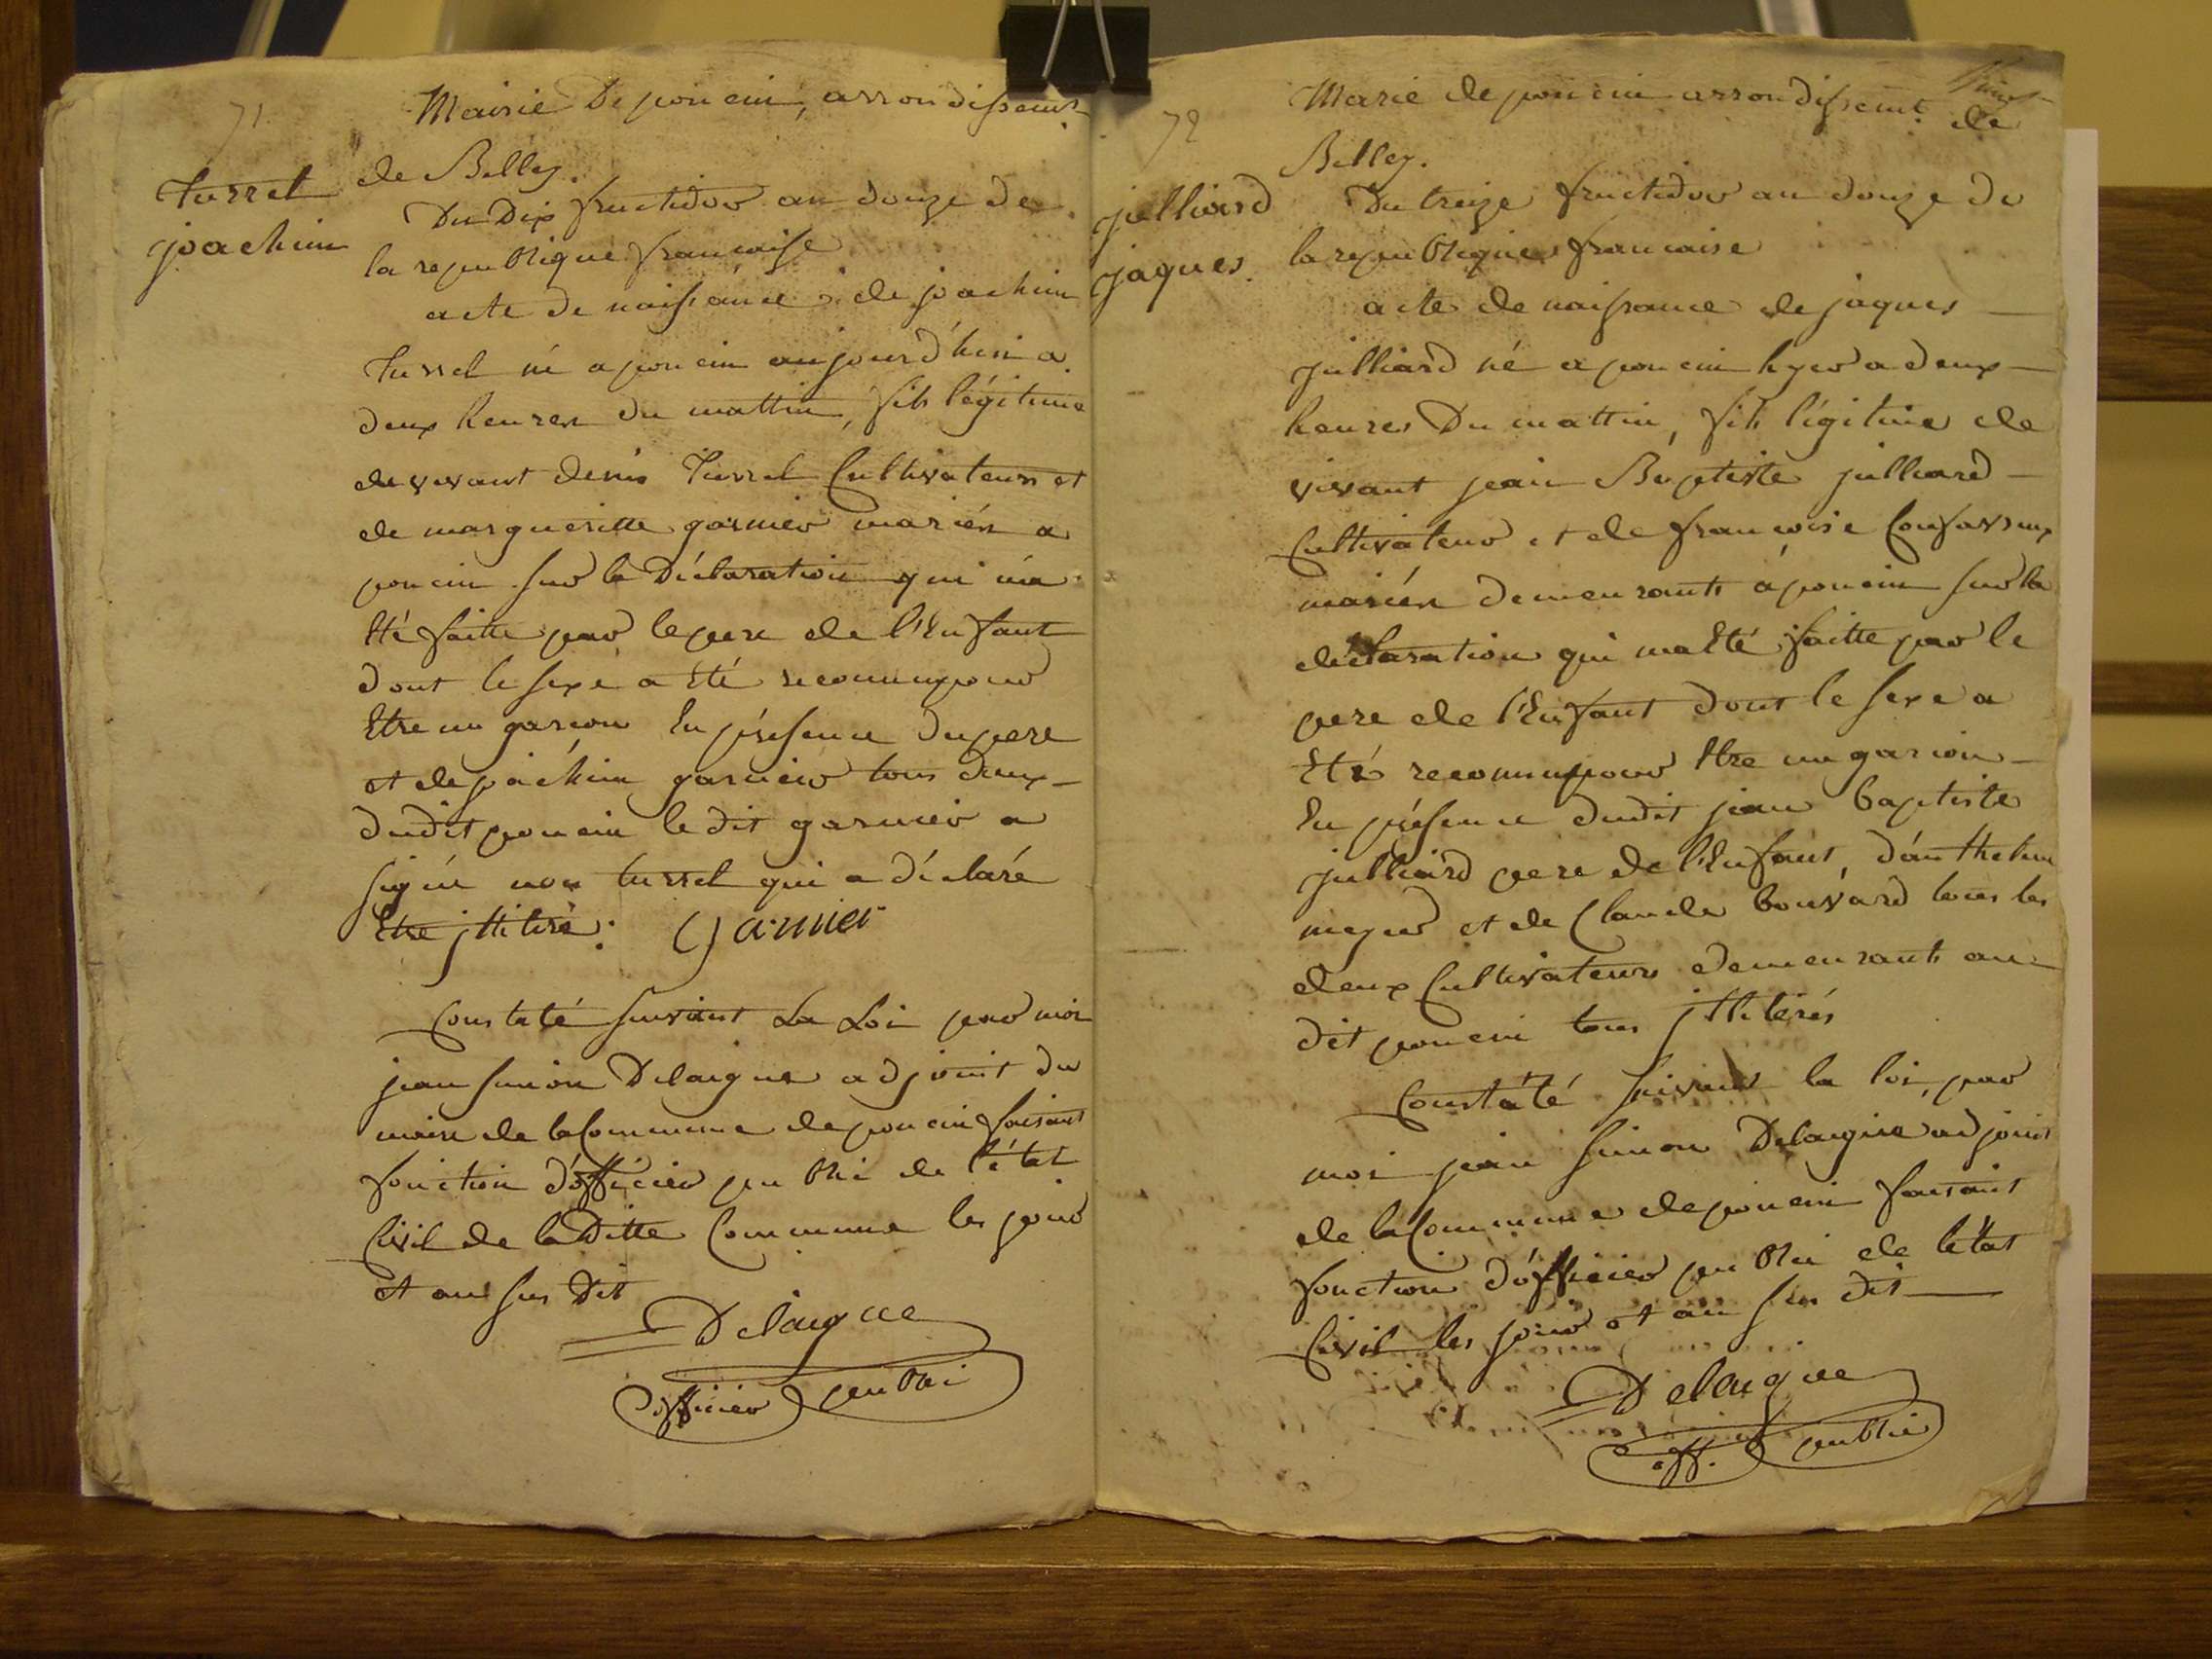 71
Turrel
joachim
Mairie De poncin, arrondissemt
de Belley.
Du Dix fructidor an douze de
la republique francaise
acte de naissance de joachim
Turrel né a poncin aujourd'hui a
deux heures du mattin, fils légitime
de vivant denis Turrel Cultivateur et
de margueritte garnier mariés a
poncin sur la Déclaration qui m'a
Eté faitte par le pere de l'Enfant
dont le sexe a Eté reconnu pour
Etre un garcon En présence du pere
et de joachim garnier tous deux
dudit poncin le dit garnier a
signé non turrel qui a déclaré
Etre jlliteré. Garnier
Constaté suivant La Loi par moi
jean simon Delaigue adjoint du
maire de la Commune de poncin faisant
fonction d'officier public de l'état
Civil de la Ditte Commune les jour
et an sus Dit
Delaigue
officier public
72
julliard
jaques
Marie de poncin arrondissemt de
Belley.
Du treize fructidor an douze de
la republique francaise
acte de naissance de jaques
julliard né a poncin hyer a deux
heures Du mattin, fils légitime de
vivant jean Baptiste julliard
Cultivateur et de francoise
mariés demeurants á poncin sur la
déclaration qui ma Eté faitte par le
pere de l'Enfant dont le sexe a
Eté reconnu pour Etre un garcon
En présence dudit jean baptiste
julliard pere de l'Enfant, d'anthelme
et de Claude bouvard tous les
deux Cultivateurs demeurants au
dit poncin tous jlliterés
Constaté suivant la loi, par
moi jean simon Delaigue adjoint
de la Commune de poncin faisant
fonction d'officier public de letat
Civil les jour et an sus dit
Delaigue
off. public